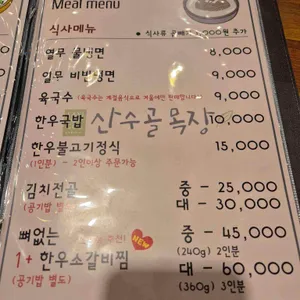 Meal menu
식사메뉴
열무 물냉면 8,000
열무 비빔냉면 9,000
육국수 (육국수는 계절음식으로 겨울에만 판매합니다) 9,000
한우국밥 10,000
산수골목장
한우불고기정식 15,000
(1인분) - 2인이상 주문가능
김치전골 중 - 25,000
(공기밥 별도) 대 - 30,000
뼈없는 중 - 45,000
NEW
(240g) 2인분
1+ 한우소갈비찜 대 - 60,000
(공기밥 별도) (360g) 3인분